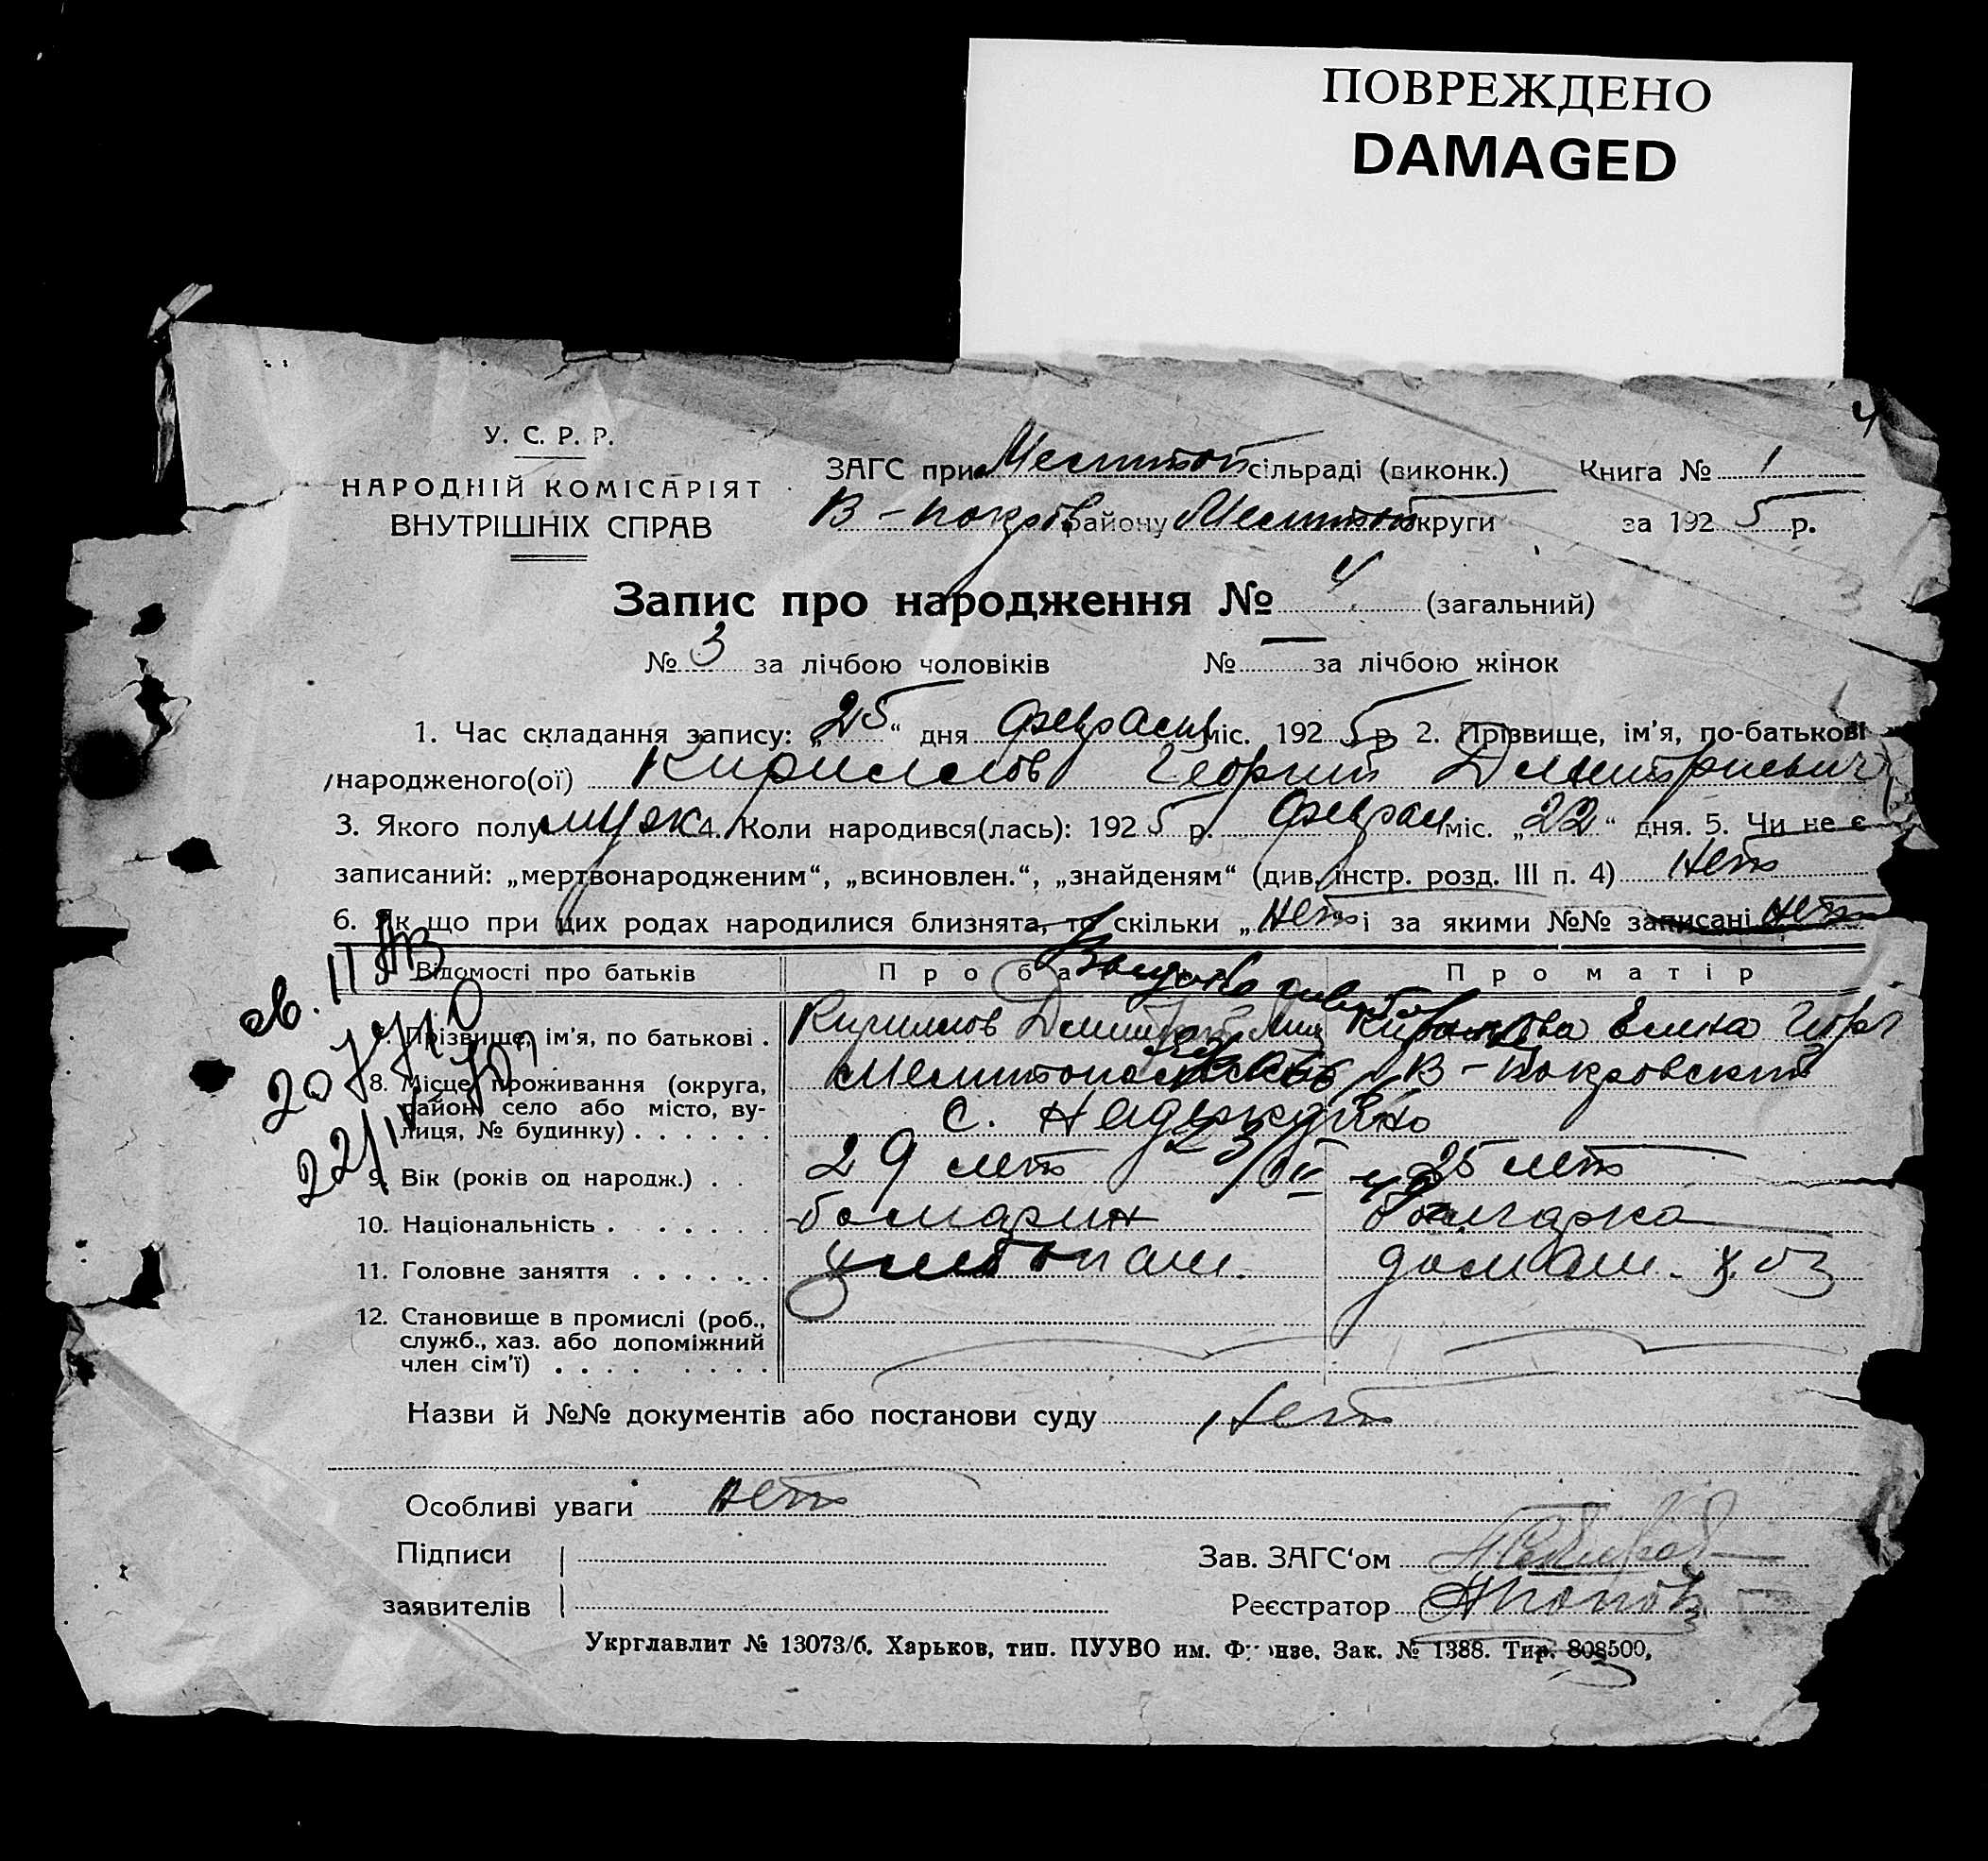 ПОВРЕЖДЕНО
DAMAGED
4
У. С. Р. Р.
НАРОДНІЙ КОМІСАРІЯТ
ВНУТРІШНІХ СПРАВ
ЗАГС при Мелитоп сільраді (виконк.) Книга № 1
В-покров району Мелитоп округи за 1925 р.
Запис про народження № 4 (загальний)
№ 3 за лічбою чоловіків № — за лічбою жінок
1. Час складання запису: „25“ дня февраля міс. 1925 р. 2. Прізвище, ім'я, по-батькові
/народженого(ої) Кириллов Георгий Дмитриевич
3. Якого полу муж 4. Коли народився(лась): 1925 р. феврал міс. „22“ дня. 5. Чи не є
записаний: „мертвонародженим“, „всиновлен.“, „знайденям“ (див. інстр. розд. III п. 4) нет
6. Як що при цих родах народилися близнята, то скільки „нет“ і за якими №№ записані нет
Відомості про батьків Про батька Про матір
Прізвище, ім'я, по батькові . Кириллов Кириллова Елена Георг
8. Місце проживання (округа, Мелитопольский В-покровский
район, село або місто, ву-
лиця, № будинку) . . . . . . с. Надеждино
9. Вік (років од народж.) . . 29 лет 25 лет
10. Національність . . . . . . болгарин болгарка
11. Головне заняття . . . . . . хлебопаш. домаш. хоз
12. Становище в промислі (роб.,
служб., хаз. або допоміжний
член сім'ї) . . . . . . . .
Назви й №№ документів або постанови суду нет
Особливі уваги нет
Підписи
заявителів
Зав. ЗАГС‘ом
Реєстратор НПопов
Укрглавлит № 13073/б. Харьков, тип. ПУУВО им. Фрунзе. Зак. № 1388. Тир. 808500,